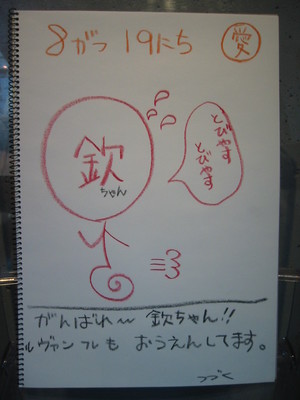 8がつ 19にち 愛
欽
ちゃん
とびやす
とびやす
がんばれ〜 欽ちゃん!!
ルヴァンフレも おうえんしてます。
つづく